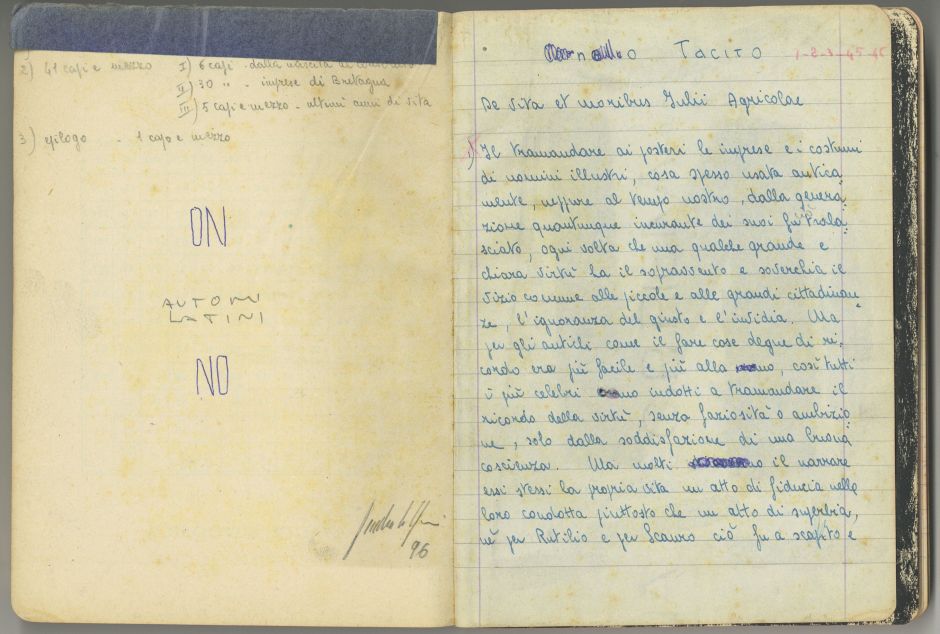 2) 41 capi e mezzo I) 6 capi - dalla nascita al consolato
II) 30 " " imprese di Bretagna
III) 5 capi e mezzo - ultimi anni di vita
3) epilogo - 1 capo e mezzo
ON
AUTORI
LATINI
NO
96
TACITO
De Vita et moribus Iulii Agricolae
1) Il tramandare ai posteri le imprese e i costumi
di uomini illustri, cosa spesso usata antica
mente, neppure al tempo nostro, dalla genera
zione quantunque incurante dei suoi fu trala
sciato, ogni volta che una qualche grande e
chiara virtù ha il sopravvento e soverchia il
vizio comune alle piccole e alle grandi cittadinan
ze, l'ignoranza del giusto e l'invidia. Ma
per gli antichi come il fare cose degne di ri
cordo era più facile e più alla mano, così tutti
i più celebri erano indotti a tramandare il
ricordo della virtù, senza faziosità o ambizio
ne, solo dalla soddisfazione di una buona
coscienza. Ma molti il narrare
essi stessi la propria vita un atto di fiducia nella
loro condotta piuttosto che un atto di superbia,
nè per Rutilio e per Scauro ciò fu a scapito e